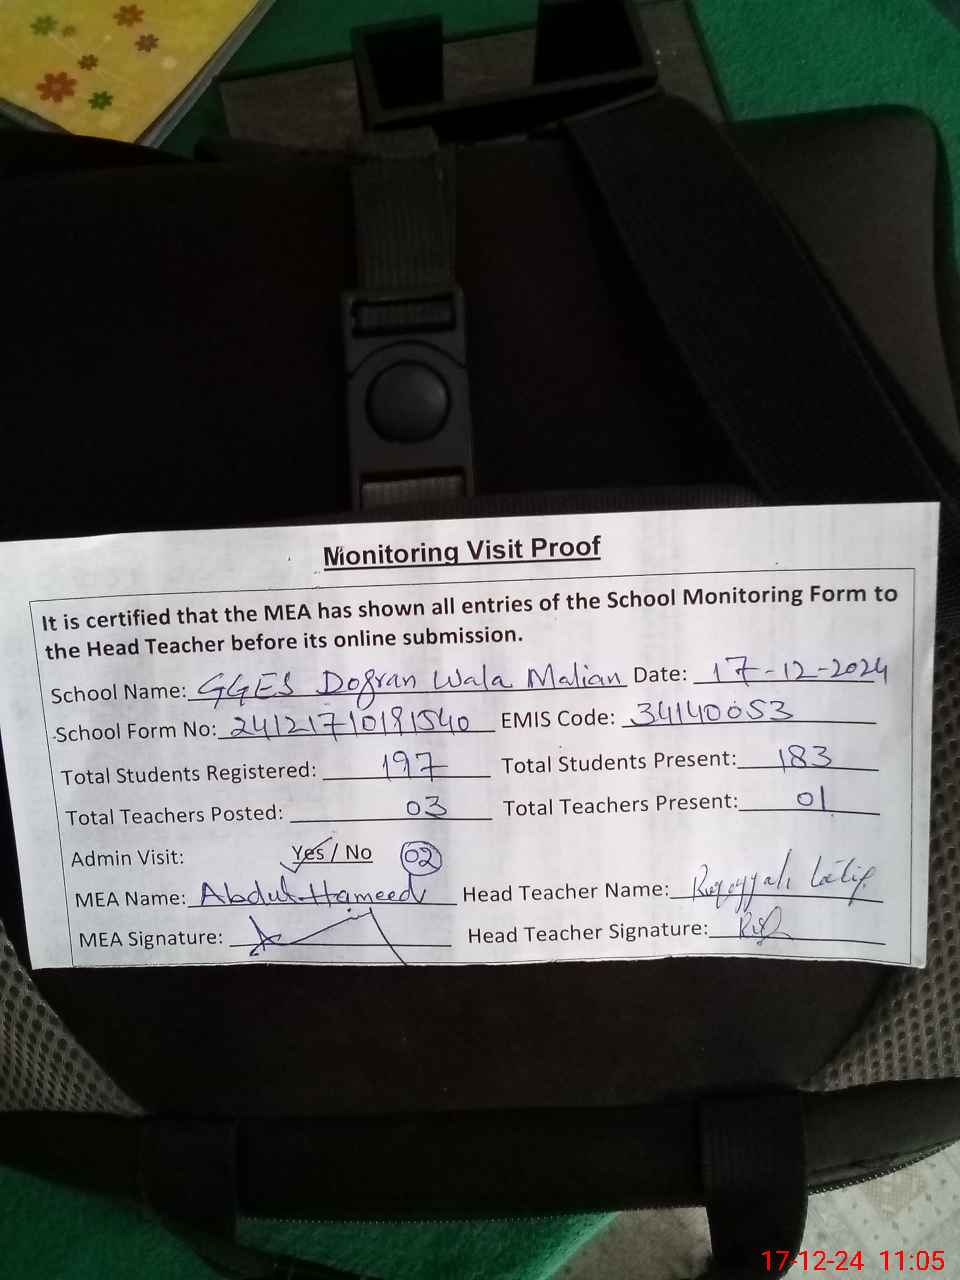 Monitoring Visit Proof
It is certified that the MEA has shown all entries of the School Monitoring Form to
the Head Teacher before its online submission.
School Name: GGES Dogran Wala Malian Date: 17-12-2024
School Form No: 24121710191540 EMIS Code: 34140053
Total Students Registered: 197 Total Students Present: 183
Total Teachers Posted: 03 Total Teachers Present: 01
Admin Visit: Yes / No 02
MEA Name: Abdul Hameed Head Teacher Name: Latif
MEA Signature: Head Teacher Signature:
17-12-24 11:05